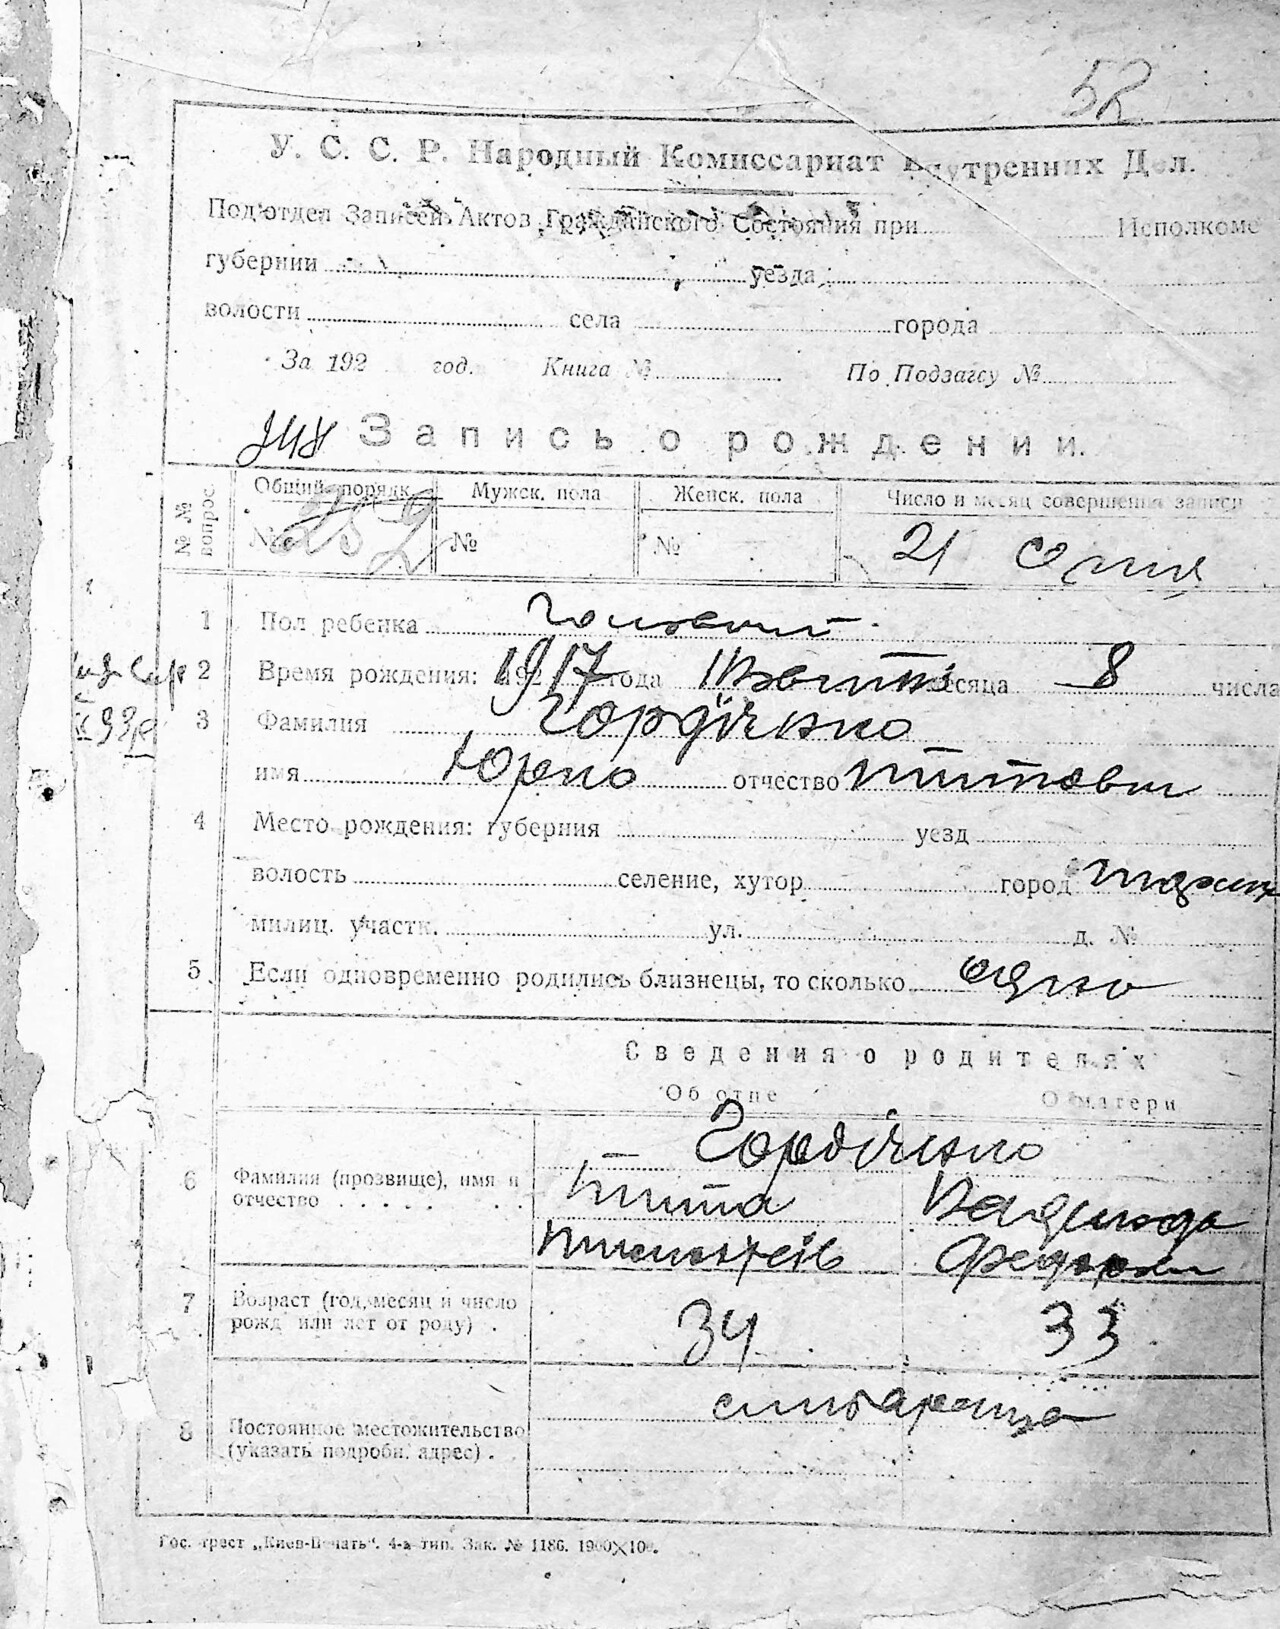 52
У. С. С. Р. Народный Комиссариат Внутренних Дел.
Под'отдел Записей Актов Гражданского Состояния при Исполкоме
губернии уезда
волости села города
За 192 год. Книга № По Подзагсу №
Запись о рождении.
№ № вопрос. Общий порядк. Мужск. пола Женск. пола Число и месяц совершения записи
№ 252 № № 21
1 Пол ребенка
2 Время рождения: 1917 года месяца 8 числа
3 Фамилия Гордієнко
имя Юрко отчество Титович
4 Место рождения: губерния уезд
волость селение, хутор город
милиц. участк. ул. д. №
5 Если одновременно родились близнецы, то сколько одно
Сведения о родителях
Об отце О матери
Гордієнко
6 Фамилия (прозвище), имя и
отчество
7 Возраст (год, месяц и число
рожд или лет от роду) . 34 33
8 Постоянное местожительство
(указать подробн. адрес) .
Гос. трест „Киев-Печать“. 4-я тип. Зак. № 1186. 1900×100.